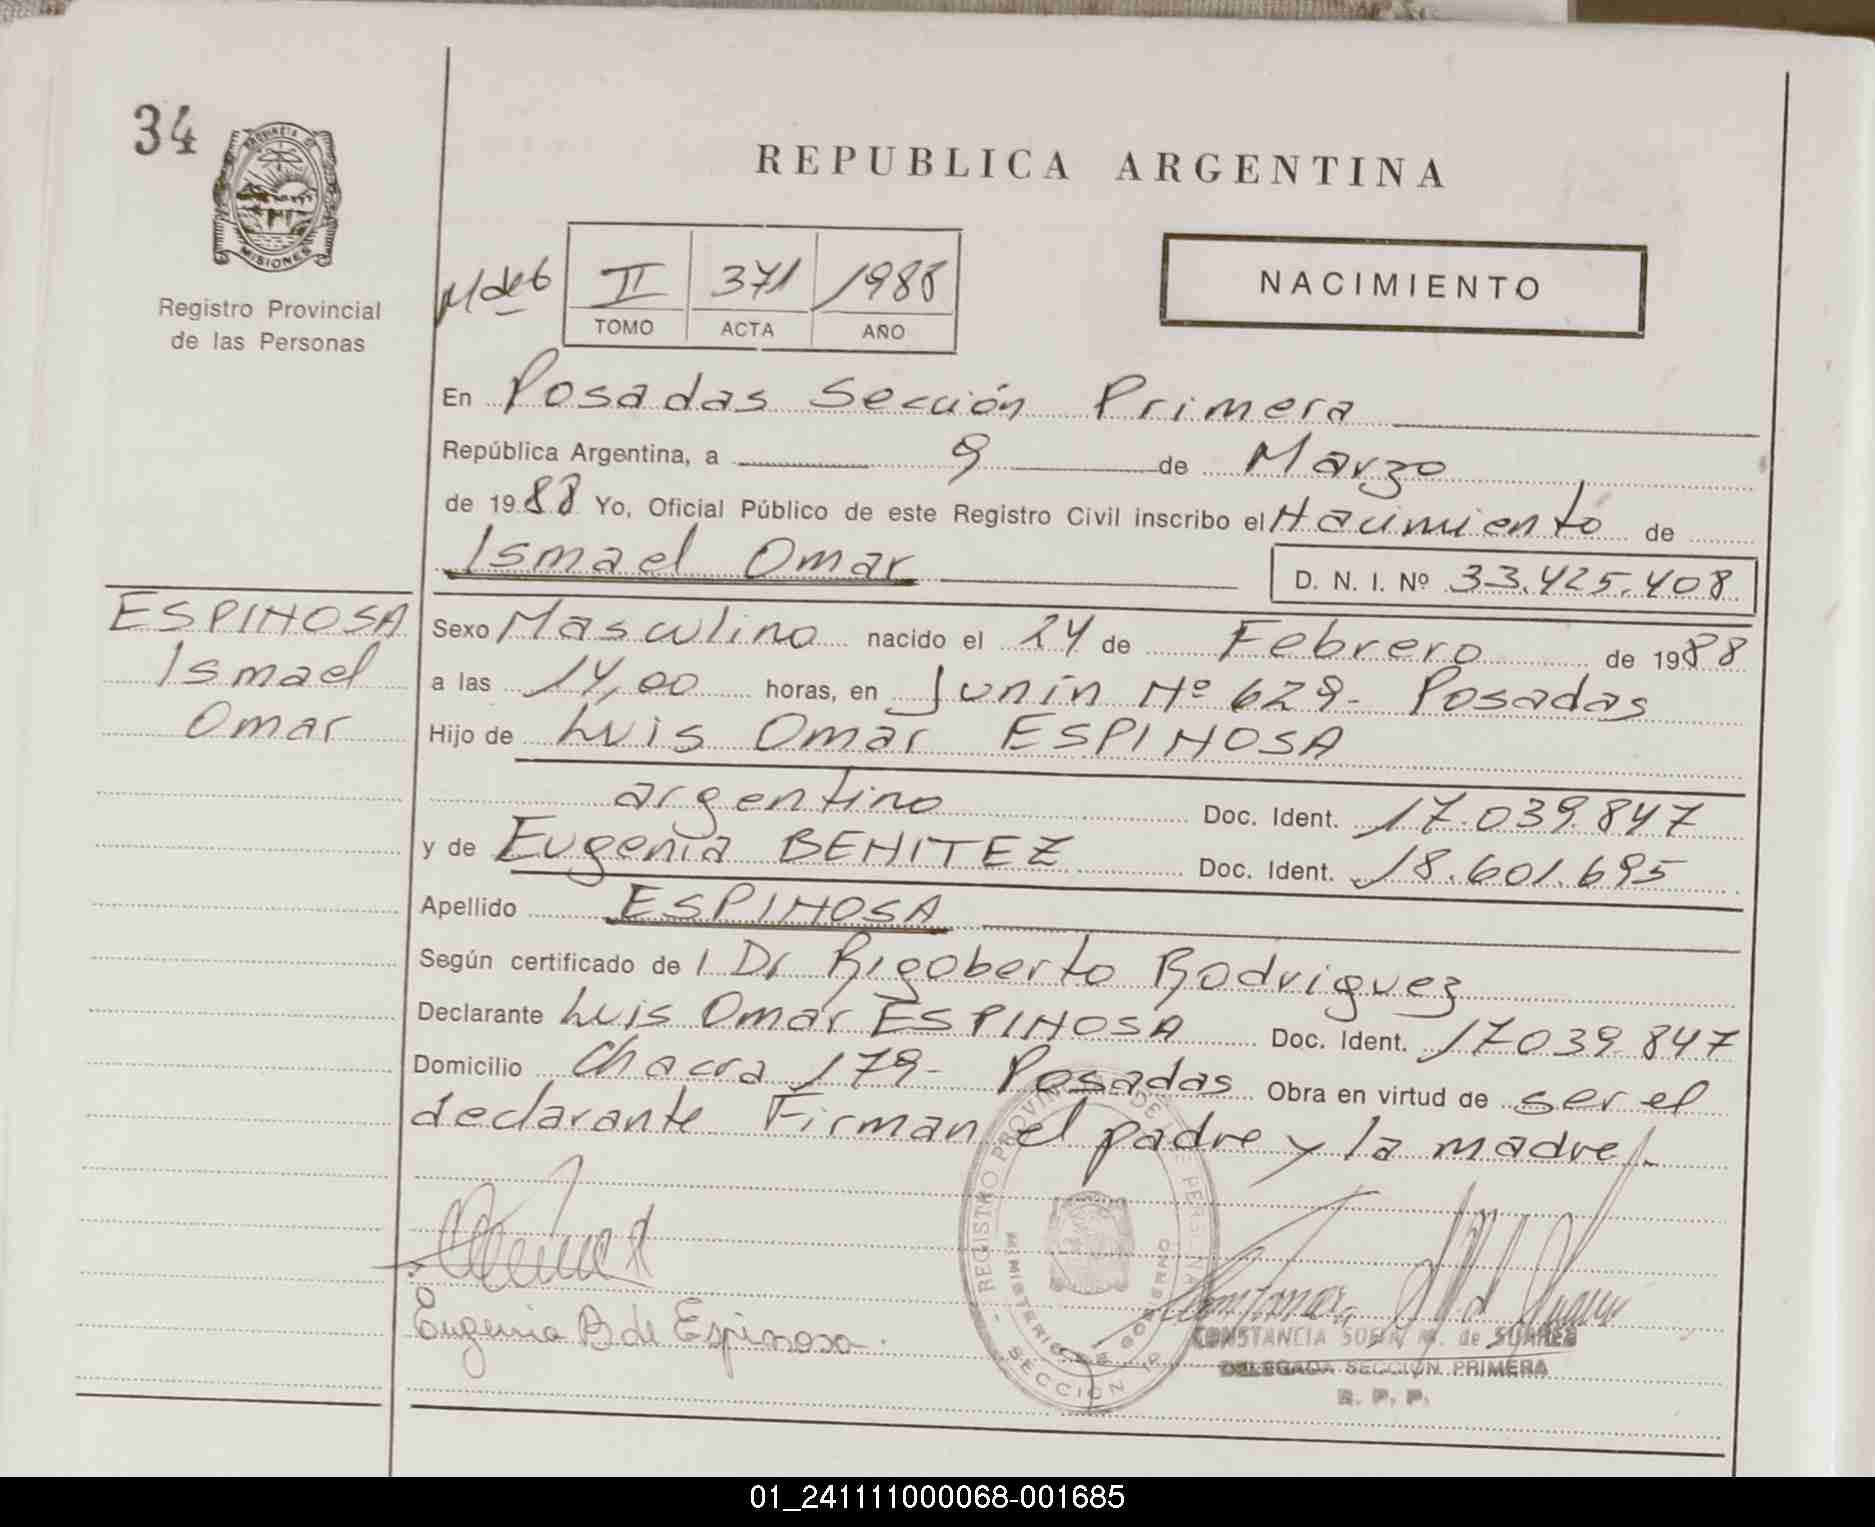 34
PROVINCIA DE
MISIONES
Registro Provincial
de las Personas
REPUBLICA ARGENTINA
II 371 1988
TOMO ACTA AÑO
NACIMIENTO
En Posadas Sección Primera
República Argentina, a 9 de Marzo
de 1988 Yo, Oficial Público de este Registro Civil inscribo el Nacimiento de
Ismael Omar
D. N. I. Nº 33.425.408
ESPINOSA
Ismael
Omar
Sexo Masculino nacido el 24 de Febrero de 1988
a las 14,00 horas, en Junín Nº 629- Posadas
Hijo de Luis Omar ESPINOSA
argentino Doc. Ident. 17.039.847
y de Eugenia BENITEZ Doc. Ident. 18.601.695
Apellido ESPINOSA
Según certificado de l Dr Rigoberto Rodriguez
Declarante Luis Omar ESPINOSA Doc. Ident. 17039.847
Domicilio Chacra 179- Posadas Obra en virtud de ser el
declarante Firman el padre y la madre.-
Eugenia B de Espinosa.
REGISTRO PROVINCIAL DE PERSONAS
MINISTERIO DE GOBIERNO
SECCION 1ª
CONSTANCIA SOFIA M. de SUAREZ
DELEGADA SECCION PRIMERA
R. P. P.
01_241111000068-001685